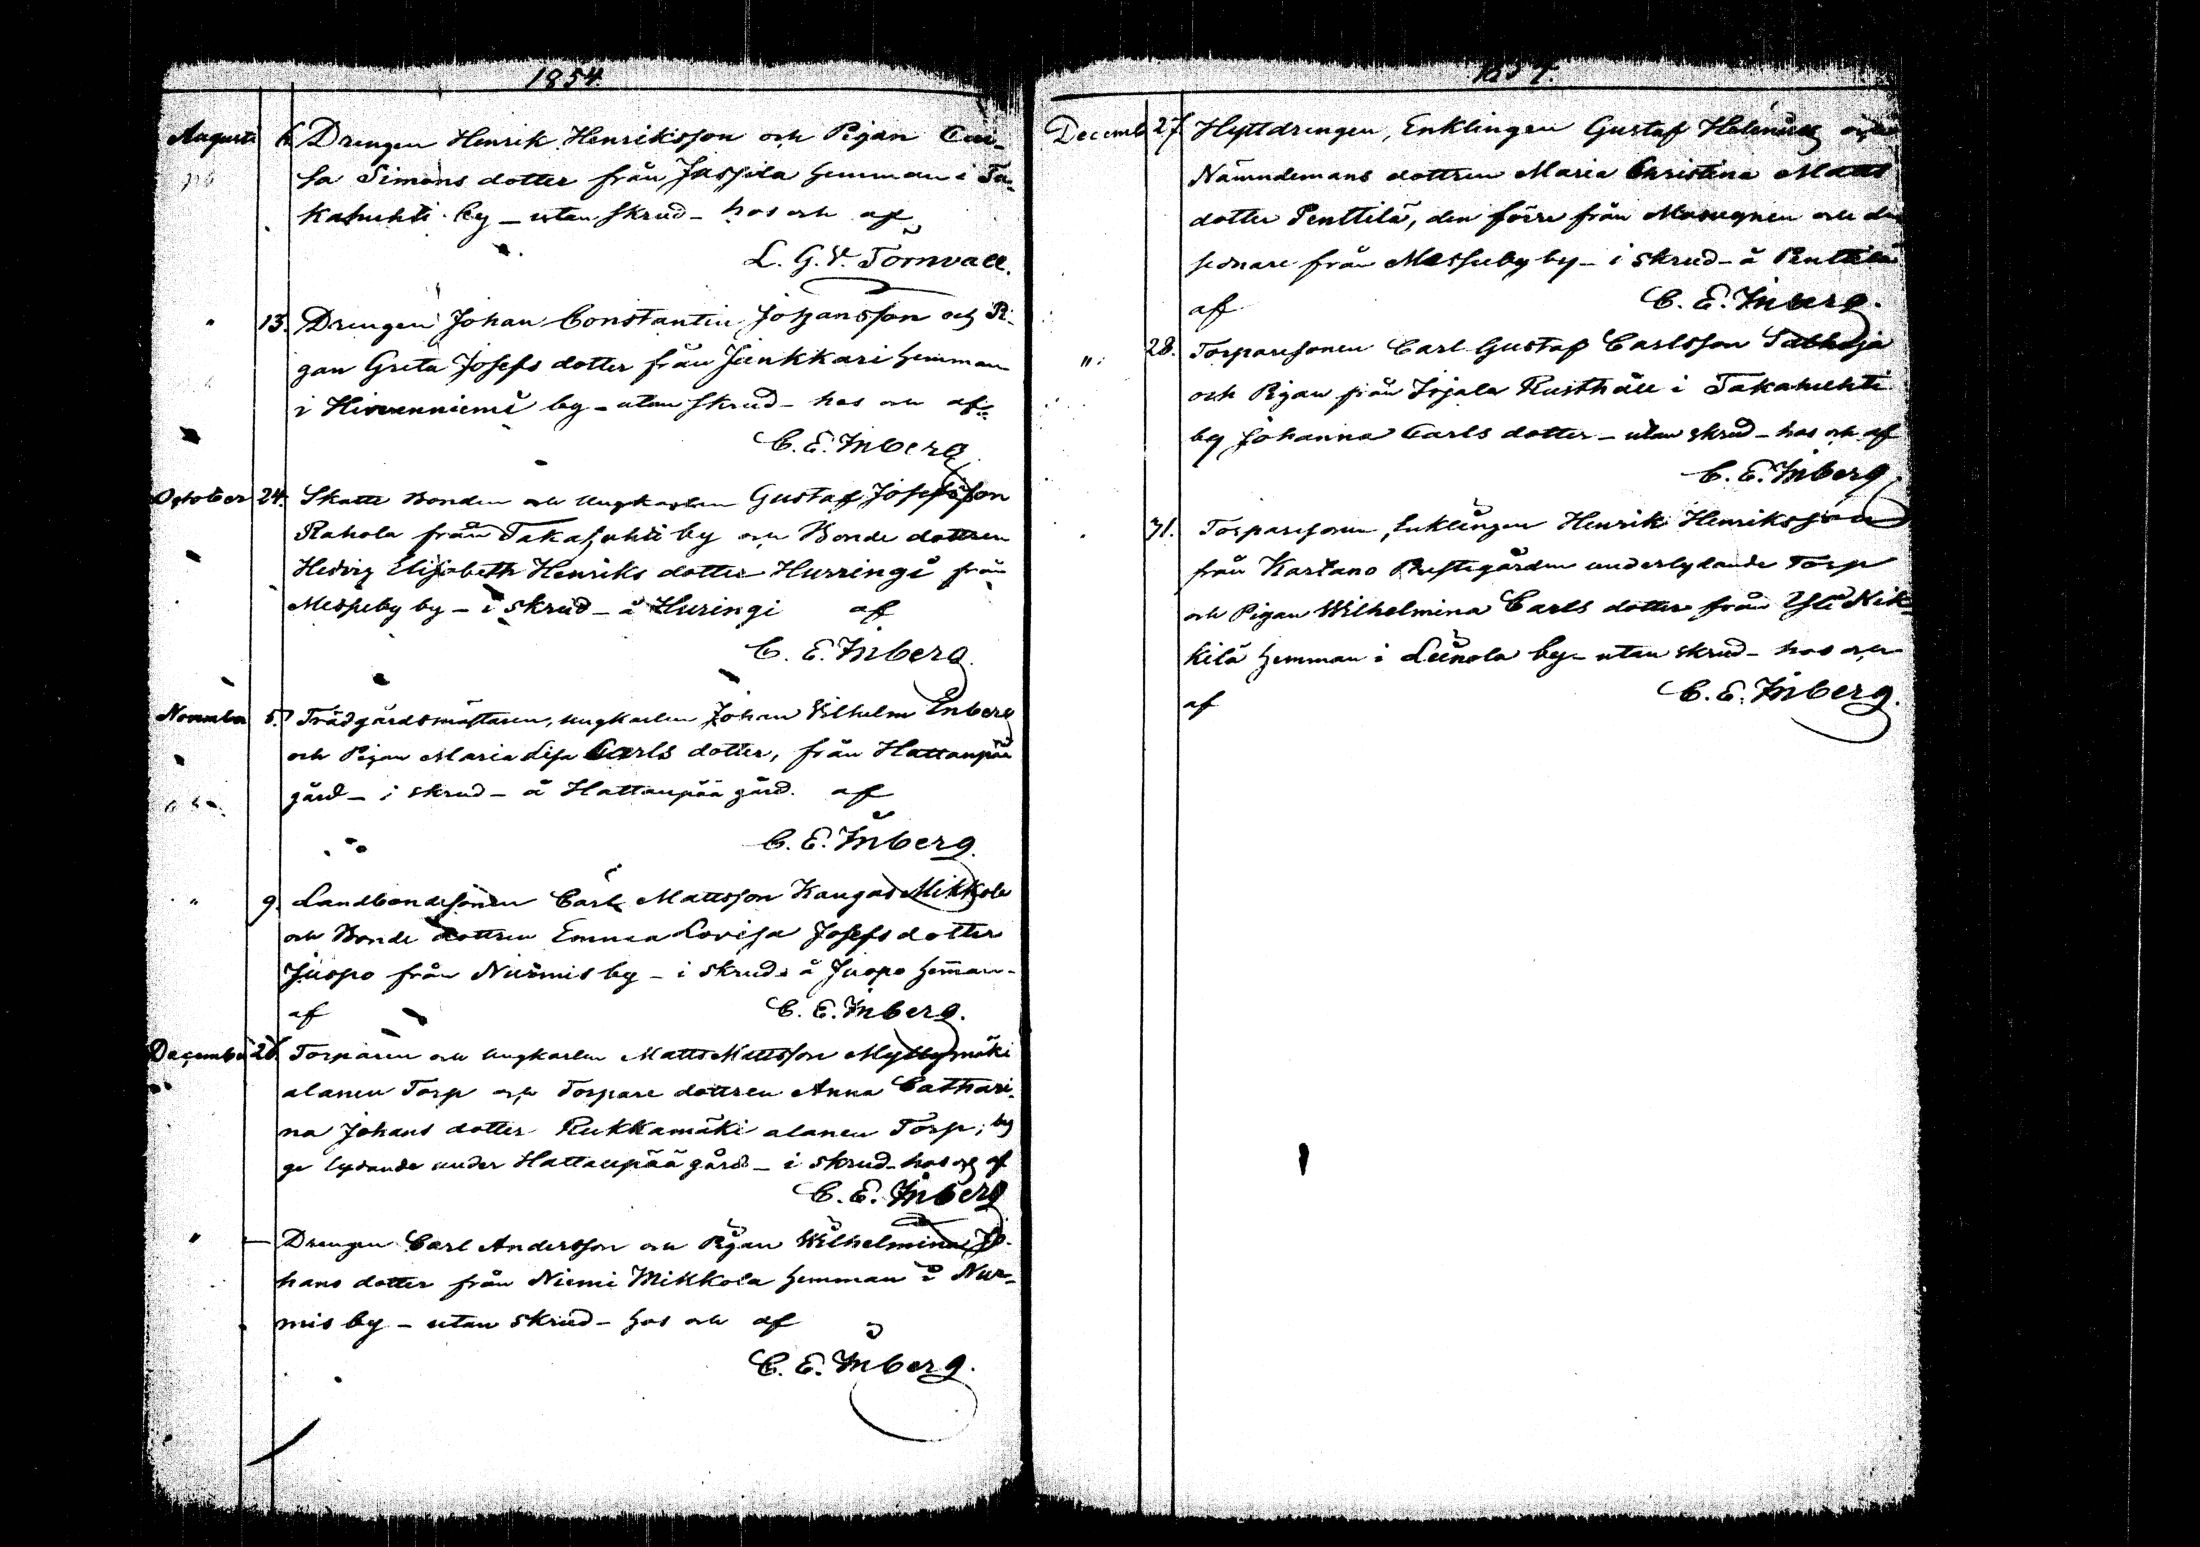 1854.
Augusti 6. Drengen Henrik Henriksson och Pigan Cai-
sa Simons dotter från Jussila hemman i Ta-
kahuhti by – utan skrud – hos och af
L. G. V. Törnvall.
" 13. Drengen Johan Constantin Johansson och Pi-
gan Greta Josefs dotter från Junkkari hemman
i Hirvenniemi by – utan skrud – hos och af
C. E. Inberg.
October 24. Skatte Bonden och Ungkarlen Gustaf Josefsson
Rahola från Takahuhti by och Bonde dottren
Hedvig Elisabeth Henriks dotter Hurringi från
Messuby by – i skrud – å Huringi af
C. E. Inberg.
November 5. Trädgårdsmästaren, ungkarlen Johan Wilhelm Enberg
och Pigan Maria Lisa Carls dotter, från Hattanpää
gård – i skrud – å Hattanpää gård. af
C. E. Inberg.
" 9. Landbondesonen Carl Mattsson Kangas Mikkola
och Bonde dottren Emma Lovisa Josefs dotter
Juopo från Nurmis by – i skrud – å Juopo hemman –
af C. E. Inberg.
December 26. Torparen och Ungkarlen Matts Mattsson Myllymäki
alanen Torp och Torpare dottren Anna Cathari-
na Johans dotter Rukkamäki alanen Torp; bäg
ge lydande under Hattanpää gård – i skrud – hos och af
C. E. Inberg
" — Drengen Carl Andersson och Pigan Wilhelmina Jo-
hans dotter från Niemi Mikkola hemman i Nur-
mis by – utan skrud – hos och af
C. E. Inberg.
1854.
Decemb. 27. Hyttdrengen, Enklingen Gustaf Helenius och
Nämndemans dottren Maria Christina Matts
dotter Penttilä, den förre från Masugnen och den
sednare från Messuby by – i skrud – å Penttilä
af C. E. Inberg.
" 28. Torparesonen Carl Gustaf Carlsson
och Pigan från Irjala Rusthåll i Takahuhti
by Johanna Carls dotter – utan skrud – hos och af
C. E. Inberg.
31. Torparesonen, Enklingen Henrik Henriksson
från Kartano Prestegården underlydande Torp
och Pigan Wilhelmina Carls dotter från Yli Nik-
kilä hemman i Leinola by – utan skrud – hos och
af C. E. Inberg.